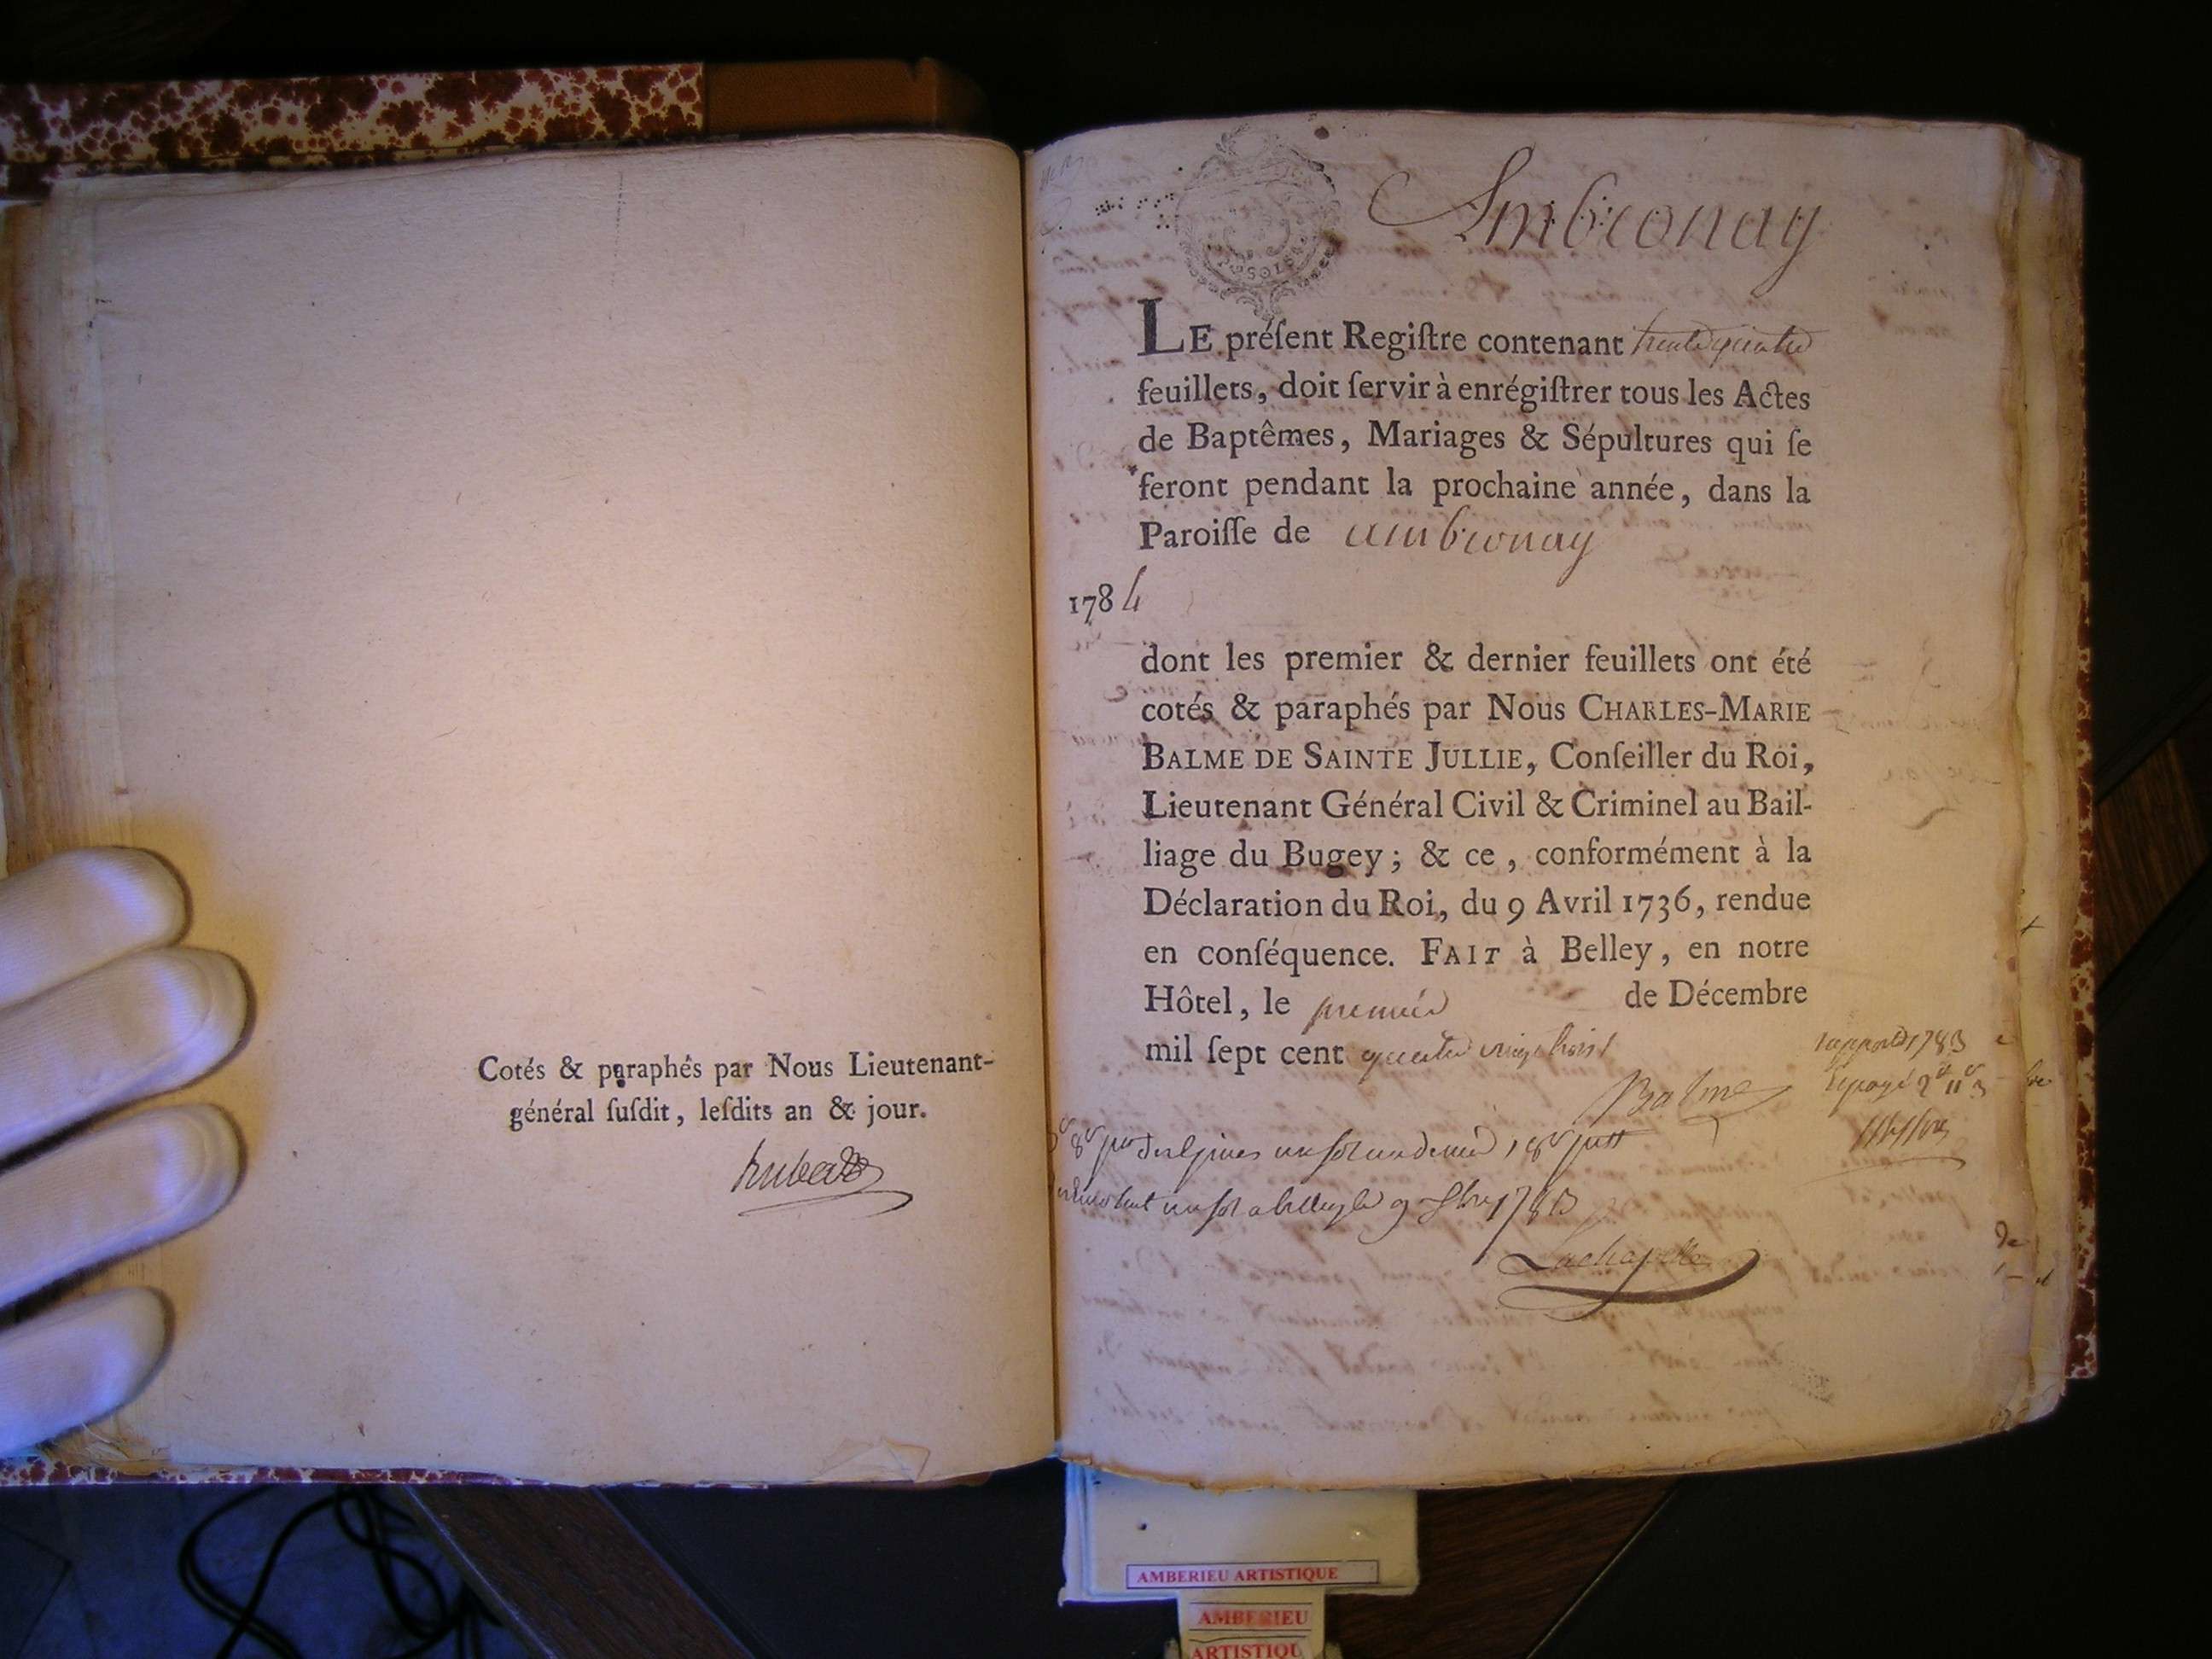 Cotés & paraphés par Nous Lieutenant-
général ſuſdit, leſdits an & jour.
Ambronay
LE préſent Regiſtre contenant trente quatre
feuillets, doit ſervir à enrégiſtrer tous les Actes
de Baptêmes, Mariages & Sépultures qui ſe
feront pendant la prochaine année, dans la
Paroiſſe de ambronay
1784
dont les premier & dernier feuillets ont été
cotés & paraphés par Nous CHARLES-MARIE
BALME DE SAINTE JULLIE, Conſeiller du Roi,
Lieutenant Général Civil & Criminel au Bail-
liage du Bugey ; & ce, conformément à la
Déclaration du Roi, du 9 Avril 1736, rendue
en conſéquence. FAIT à Belley, en notre
Hôtel, le premier de Décembre
mil ſept cent quatre vingt trois
Balme
un sol a belley le 9 1783
Lachapelle
AMBERIEU ARTISTIQUE
AMBERIEU
ARTISTIQU